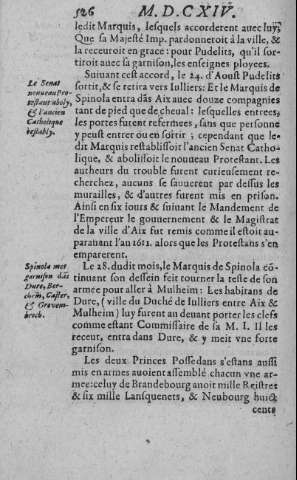 526
M. D. C XIV.
ledit Marquis, lesquels accorderent auec luy,
Que sa Majesté Imp. pardonneroit à la ville, &
la receuroit en grace: pour Pudelits, qu'il sor-
tiroit auec sa garnison, les enseignes ployees.
Suiuant cest accord, le 24. d'Aoust Pudelits
sortit, & se retira vers Iulliers: Et le Marquis de
Spinola entra dãs Aix auec douze compagnies
tant de pied que de cheual: lesquelles entrees,
les portes furent refermees, sans que personne
y peust entrer ou en sortir; cependant que le-
dit Marquis restablissoit l'ancien Senat Catho-
lique, & abolissoit le nouueau Protestant. Les
autheurs du trouble furent curieusement re-
cherchez, aucuns se sauuerent par dessus les
murailles, & d'autres furent mis en prison.
Ainsi en six iours & suiuant le Mandement de
l'Empereur le gouuernement & le Magistrat
de la ville d'Aix fut remis comme il estoit au-
parauant l'an 1611. alors que les Protestans s'en
emparerent.
Le Senat
nouueau Pro-
testant aboly,
& l'ancien
Catholique
restably.
Le 28. dudit mois, le Marquis de Spinola cõ-
tinuant son dessein feit tourner la teste de son
armee pour aller à Mulheim: Les habitans de
Dure, (ville du Duché de Iulliers entre Aix &
Mulheim) luy furent au deuant porter les clefs
comme estant Commissaire de sa M. I. Il les
receut, entra dans Dure, & y meit vne forte
garnison.
Spinola met
garnison dãs
Dure, Ber-
cheim, Caster,
& Greuem-
broch.
Les deux Princes Possedans s'estans aussi
mis en armes auoient assemblé chacun vne ar-
mee: celuy de Brandebourg auoit mille Reistres
& six mille Lansquenets, & Neubourg huict
cents